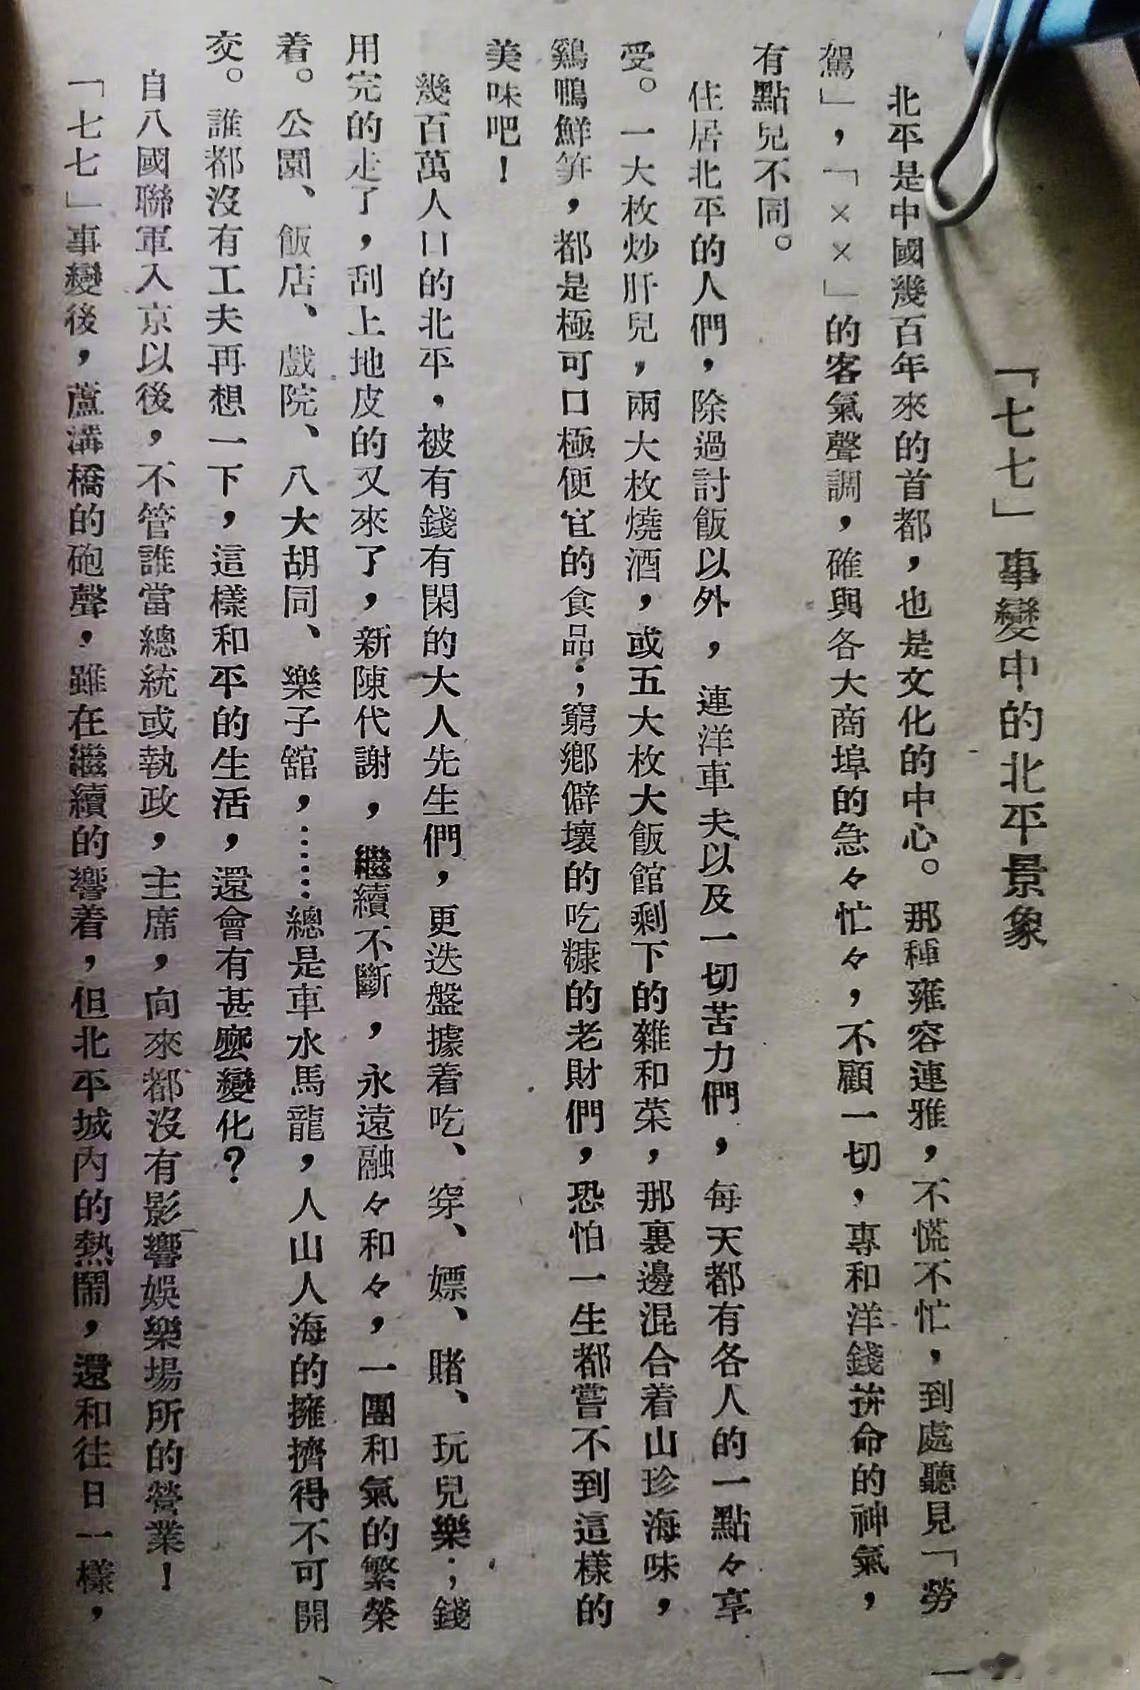 「七七」事變中的北平景象
北平是中國幾百年來的首都，也是文化的中心。那種雍容連雅，不慌不忙，到處聽見「勞
駕」，「××」的客氣聲調，確與各大商埠的急々忙々，不顧一切，專和洋錢拚命的神氣，
有點兒不同。
住居北平的人們，除過討飯以外，連洋車夫以及一切苦力們，每天都有各人的一點々享
受。一大枚炒肝兒，兩大枚燒酒，或五大枚大飯館剩下的雜和菜，那裏邊混合着山珍海味，
鷄鴨鮮笋，都是極可口極便宜的食品；窮鄉僻壤的吃糠的老財們，恐怕一生都嘗不到這樣的
美味吧！
幾百萬人口的北平，被有錢有閑的大人先生們，更迭盤據着吃、穿、嫖、賭、玩兒樂；錢
用完的走了，刮上地皮的又來了，新陳代謝，繼續不斷，永遠融々和々，一團和氣的繁榮
着。公園、飯店、戲院、八大胡同、樂子舘，……總是車水馬龍，人山人海的擁擠得不可開
交。誰都沒有工夫再想一下，這樣和平的生活，還會有甚麼變化？
自八國聯軍入京以後，不管誰當總統或執政，主席，向來都沒有影響娛樂場所的營業！
「七七」事變後，蘆溝橋的砲聲，雖在繼續的響着，但北平城內的熱鬧，還和往日一樣，